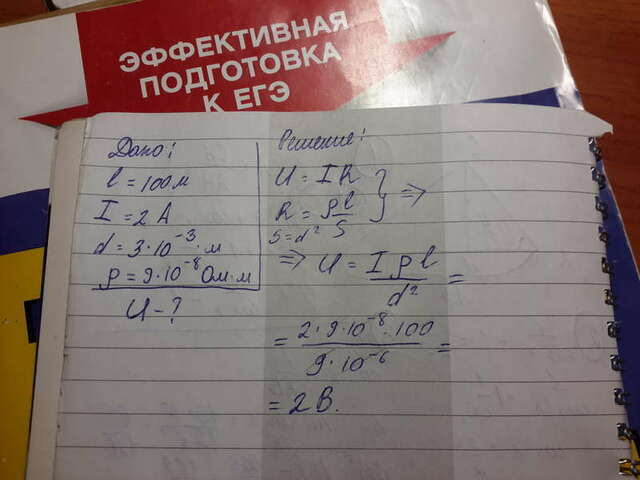 ЭФФЕКТИВНАЯ
ПОДГОТОВКА
К ЕГЭ
Дано:
l = 100 м
I = 2 А
d = 3·10⁻³ · м
ρ = 9·10⁻⁸ Ом·м
U - ?
Решение:
U = IR
R = ρl/S } =>
S = d²
=> U = Iρl/d² =
= 2·9·10⁻⁸·100/9·10⁻⁶ =
= 2 В.